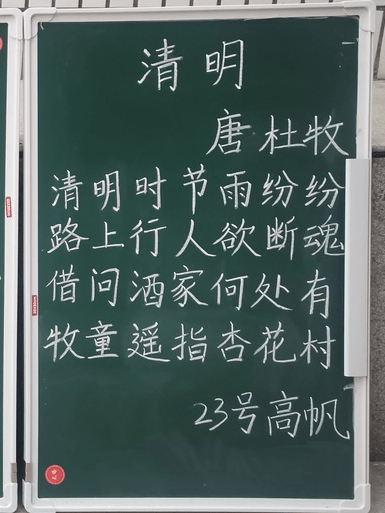 清明
唐 杜牧
清明时节雨纷纷
路上行人欲断魂
借问酒家何处有
牧童遥指杏花村
23号高帆